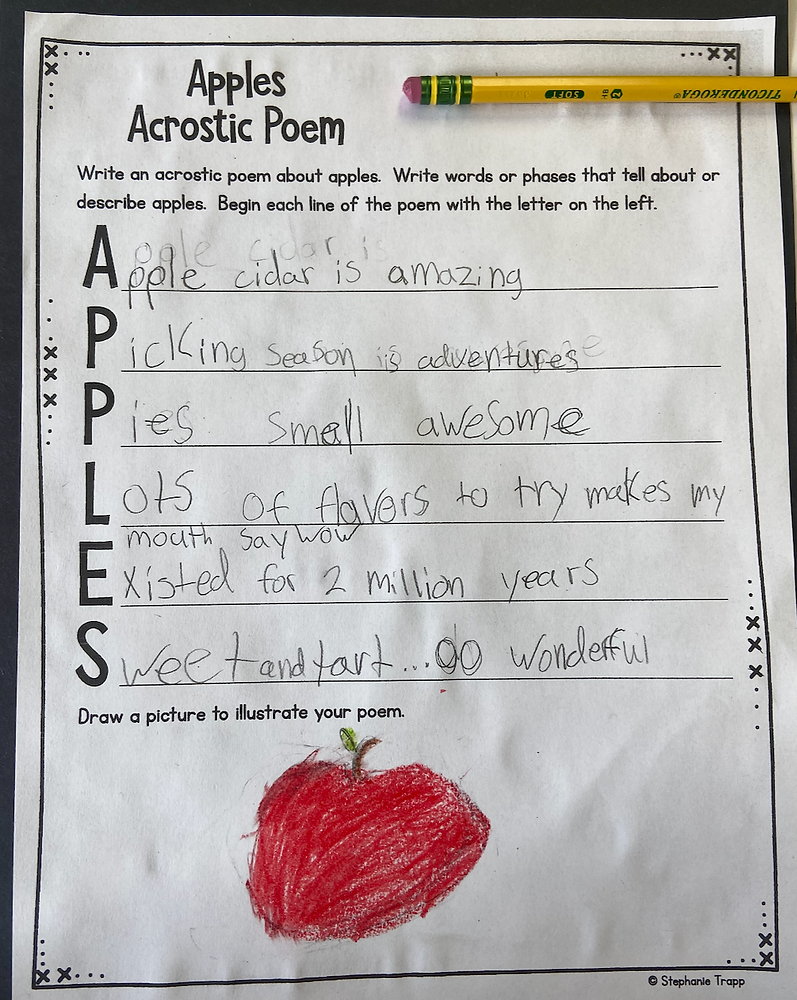 Apples
Acrostic Poem
TICONDEROGA® 2 HB SOFT
Write an acrostic poem about apples. Write words or phases that tell about or
describe apples. Begin each line of the poem with the letter on the left.
Apple cidar is
Apple cidar is amazing
Picking season is adventures
Pies smell awesome
Lots of flavors to try makes my
mouth say wow
Existed for 2 million years
Sweet and tart... wonderful
Draw a picture to illustrate your poem.
© Stephanie Trapp